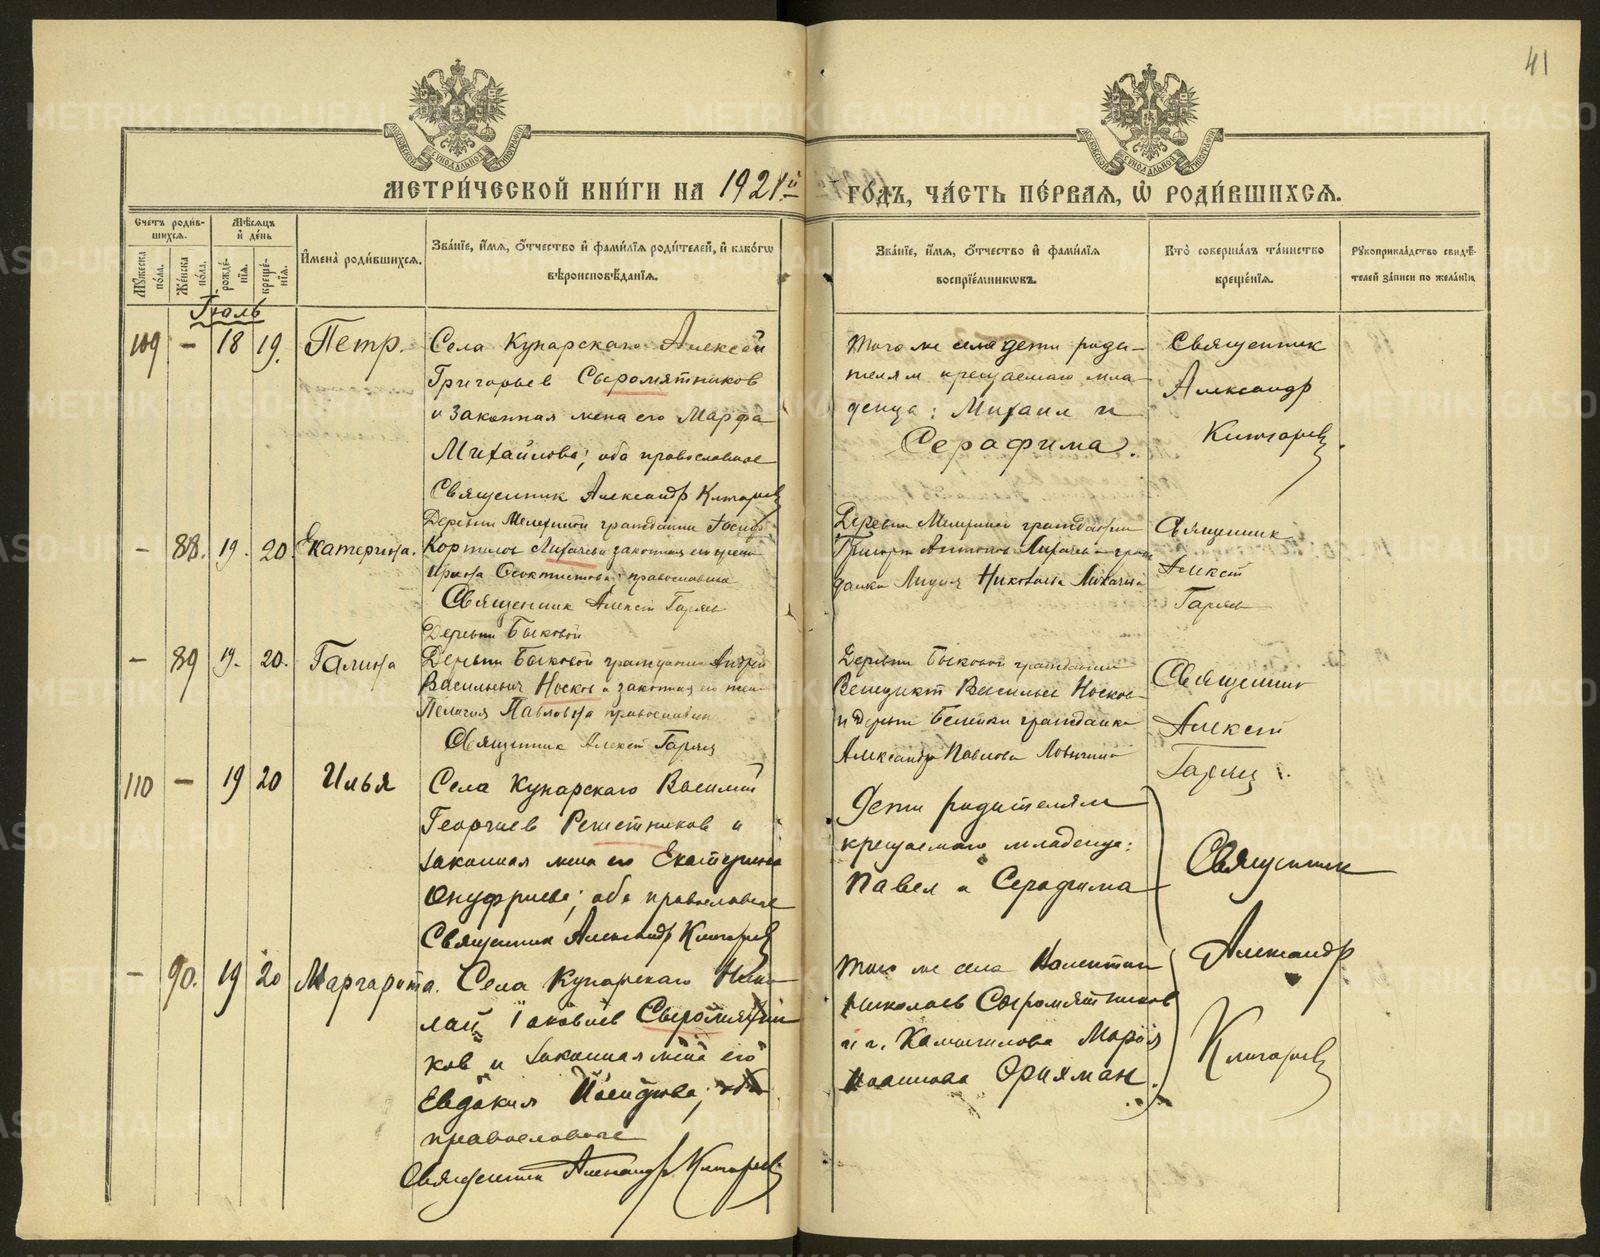 41
МЕТРИ́ЧЕСКОЙ КНИ́ГИ НА 1921й ГО́ДЪ, ЧА́СТЬ ПЕ́РВАЯ, Ѡ РОДИ́ВШИХСЯ.
Счетъ роди́вшихся.
Мѣ́сяцъ и҆ де́нь
Мужеска пола.
Же́нска по́ла.
рожде́нїя.
креще́нїя.
И҆мена̀ роди́вшихся.
Зва́нїе, и҆́мя, ѻ҆́тчество и҆ фами́лїя роди́телей, и҆ како́гѡ вѣроисповѣ́данїя.
Зва́нїе, и҆́мя, ѻ҆́тчество и҆ фами́лїя воспрїе́мникѡвъ.
Кто̀ соверша́лъ та́инство креще́нїя.
Рукоприкла́дство свидѣ́телей за́писи по жела́нїю
Іюль
109 — 18 19. Петр.
Села Кунарскаго Алексей
Григорьев Сыромятников
и законная жена его Марфа
Михайлова; оба православные
Священник Александр
Того же села дети роди-
телям крещаемаго мла-
денца: Михаил и
Серафима.
Священник
Александр
— 88. 19. 20. Екатерина.
Деревни гражданин
Лихачев законная его
Ирина Феоктистова; православные
Священник Алексей
Деревни гражданин
Григорий Антонов Лихачев
Лидия Николаева Лихачева
Священник
Алексей
Деревни Быковой
— 89 19. 20. Галина
Деревни Быковой гражданин Андрей
Васильевич Носков и законная его жена
Пелагия Павловна православные
Священник Алексей
Деревни Быковой гражданин
Венедикт Васильев Носков
и дер. гражданка
Александра Павлова
Священник
Алексей
110 — 19 20 Илья
Села Кунарскаго Василий
Георгиев Решетников и
законная жена его Екатерина
Онуфриева; оба православные
Священник Александр
Дети родителям
крещаемаго младенца:
Павел и Серафима
Священник
Александр
— 90. 19 20 Маргарита.
Села Кунарскаго Нико-
лай Іаковлев Сыромятни-
ков и законная жена его
Евдокия
православные
Священник Александр
Того же села Валентин
Николаев Сыромятников
и г. Камышлова Мария
METRIKI.GASO-URAL.RU